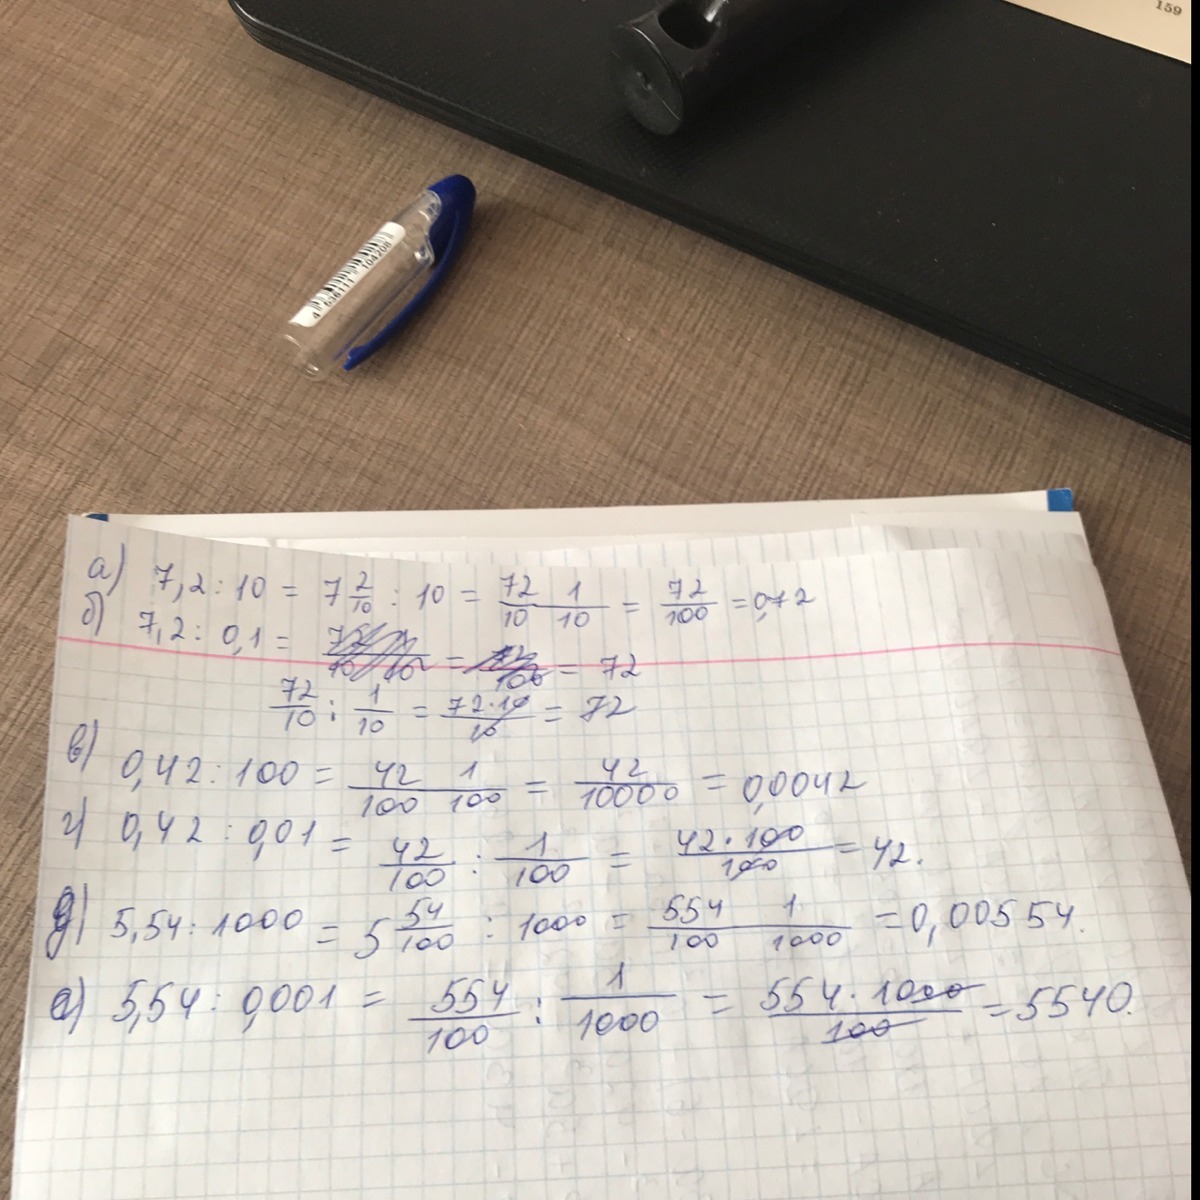 159
4 636111 104208
а) 7,2 : 10 = 7 2/10 : 10 = 72/10 1/10 = 72/100 = 0,72
б) 7,2 : 0,1 = = = 72
72/10 : 1/10 = 72·10/10 = 72
в) 0,42 : 100 = 42/100 1/100 = 42/10000 = 0,0042
г) 0,42 : 0,01 = 42/100 : 1/100 = 42·100/100 = 42.
д) 5,54 : 1000 = 5 54/100 : 1000 = 554/100 1/1000 = 0,00554.
е) 5,54 : 0,001 = 554/100 : 1/1000 = 554·1000/100 = 5540.